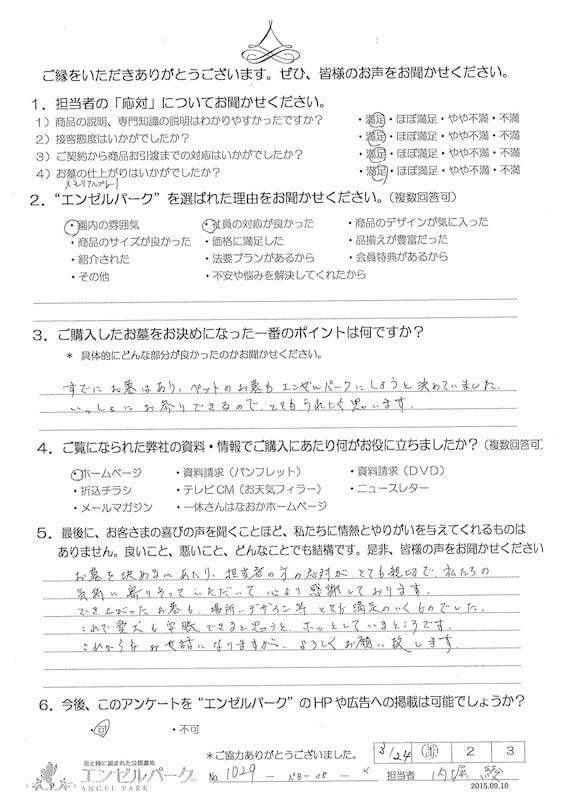 ご縁をいただきありがとうございます。ぜひ、皆様のお声をお聞かせください。
1. 担当者の「応対」についてお聞かせください。
1）商品の説明、専門知識の説明はわかりやすかったですか？ ・満足・ほぼ満足・やや不満・不満
2）接客態度はいかがでしたか？ ・満足・ほぼ満足・やや不満・不満
3）ご契約から商品お引渡までの対応はいかがでしたか？ ・満足・ほぼ満足・やや不満・不満
4）お墓の仕上がりはいかがでしたか？ ・満足・ほぼ満足・やや不満・不満
2. “エンゼルパーク”を選ばれた理由をお聞かせください。（複数回答可）
・園内の雰囲気 ・社員の対応が良かった ・商品のデザインが気に入った
・商品のサイズが良かった ・価格に満足した ・品揃えが豊富だった
・紹介された ・法要プランがあるから ・会員特典があるから
・その他 ・不安や悩みを解決してくれたから
3. ご購入したお墓をお決めになった一番のポイントは何ですか？
* 具体的にどんな部分が良かったのかお聞かせください。
すでにお墓はあり、ペットのお墓もエンゼルパークにしようと決めていました。
いっしょにお参りできるので、とてもうれしく思います。
4. ご覧になられた弊社の資料・情報でご購入にあたり何がお役に立ちましたか？（複数回答可）
・ホームページ ・資料請求（パンフレット） ・資料請求（DVD）
・折込チラシ ・テレビCM（お天気フィラー） ・ニュースレター
・メールマガジン ・一休さんはなおかホームページ
5. 最後に、お客さまの喜びの声を聞くことほど、私たちに情熱とやりがいを与えてくれるものは
ありません。良いこと、悪いこと、どんなことでも結構です。是非、皆様の声をお聞かせください
お墓を決めるにあたり、担当者の方の応対が、とても親切で、私たちの
気持に寄りそっていただいて心より感謝しております。
でき上がったお墓も、場所、デザイン等 とても満足のいくものでした。
これで愛犬も安眠できると思うと、ホッとしているところです。
これからもお世話になりますが、よろしくお願い致します。
6. 今後、このアンケートを“エンゼルパーク”のHPや広告への掲載は可能でしょうか？
・可 ・不可
*ご協力ありがとうございました。
3/24 2 3
花と緑に囲まれた公園墓地
エンゼルパーク
ANGEL PARK
No 1029
担当者 内堀
2015.09.10